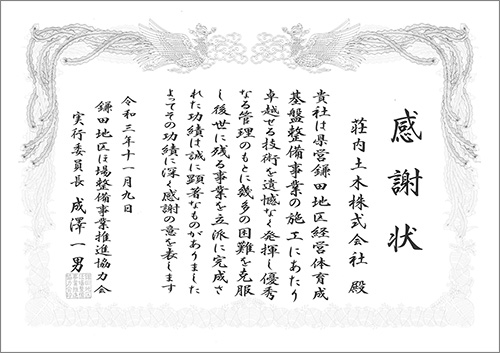 感謝状
荘内土木株式会社 殿
貴社は県営鎌田地区経営体育成
基盤整備事業の施工にあたり
卓越せる技術を遺憾なく発揮し優秀
なる管理のもとに幾多の困難を克服
し後世に残る事業を立派に完成さ
れた功績は誠に顕著なものがありました
よってその功績に深く感謝の意を表します
令和三年十一月九日
鎌田地区ほ場整備事業推進協力会
実行委員長 成澤一男